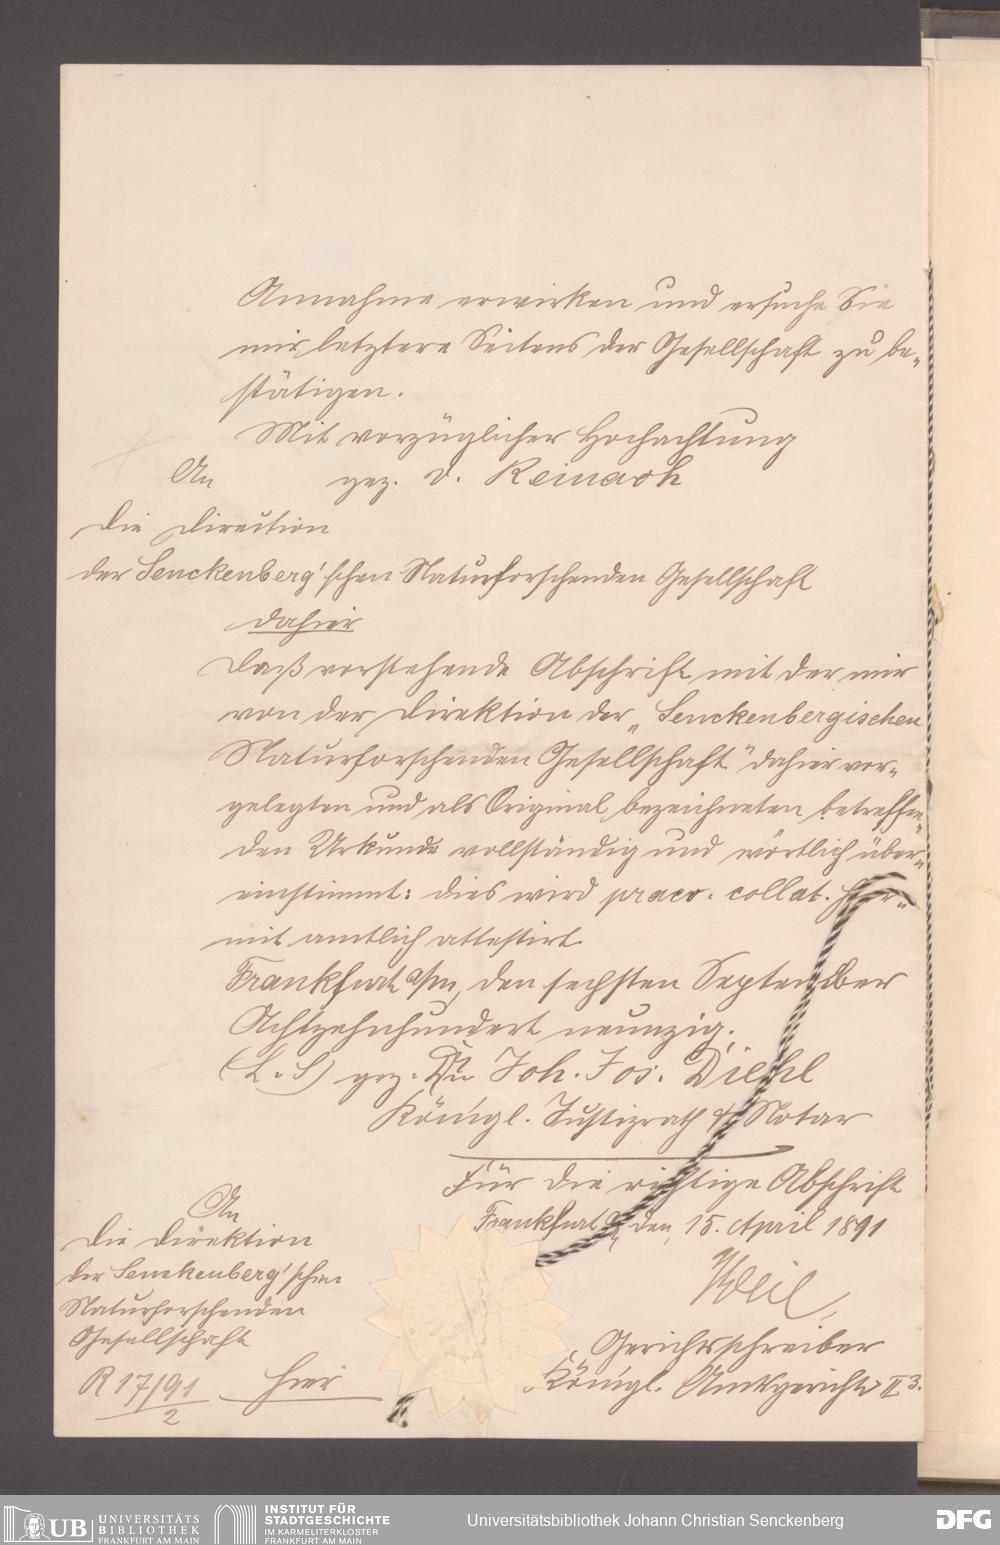 Annahme erwirken und ersuche Sie
mir letztere Seitens der Gesellschaft zu be-
stätigen.
Mit vorzüglicher Hochachtung
gez. v. Reinach
An
die Direction
der Senckenberg'schen Naturforschenden Gesellschaft
dahier
Daß vorstehende Abschrift mit der mir
von der Direktion der „Senckenbergischen
Naturforschenden Gesellschaft" dahier vor-
gelegten und als Original bezeichneten betreffen-
den Urkunde vollständig und wörtlich über-
einstimmt: dies wird praev. collat. hier-
mit amtlich attestirt.
Frankfurt a/m, den sechsten September
Achtzehnhundert neunzig.
(L. S) gez. Dr Joh. Jos. Diehl
Königl. Justizrath & Notar
Für die richtige Abschrift
Frankfurt den 15. April 1891
Weil,
Gerichtsschreiber
Königl. Amtsgerichts II 3.
An
die Direktion
der Senckenberg'schen
Naturforschenden
Gesellschaft
R 17/91
2
hier
UB UNIVERSITÄTS
BIBLIOTHEK
FRANKFURT AM MAIN
INSTITUT FÜR
STADTGESCHICHTE
IM KARMELITERKLOSTER
FRANKFURT AM MAIN
Universitätsbibliothek Johann Christian Senckenberg
DFG